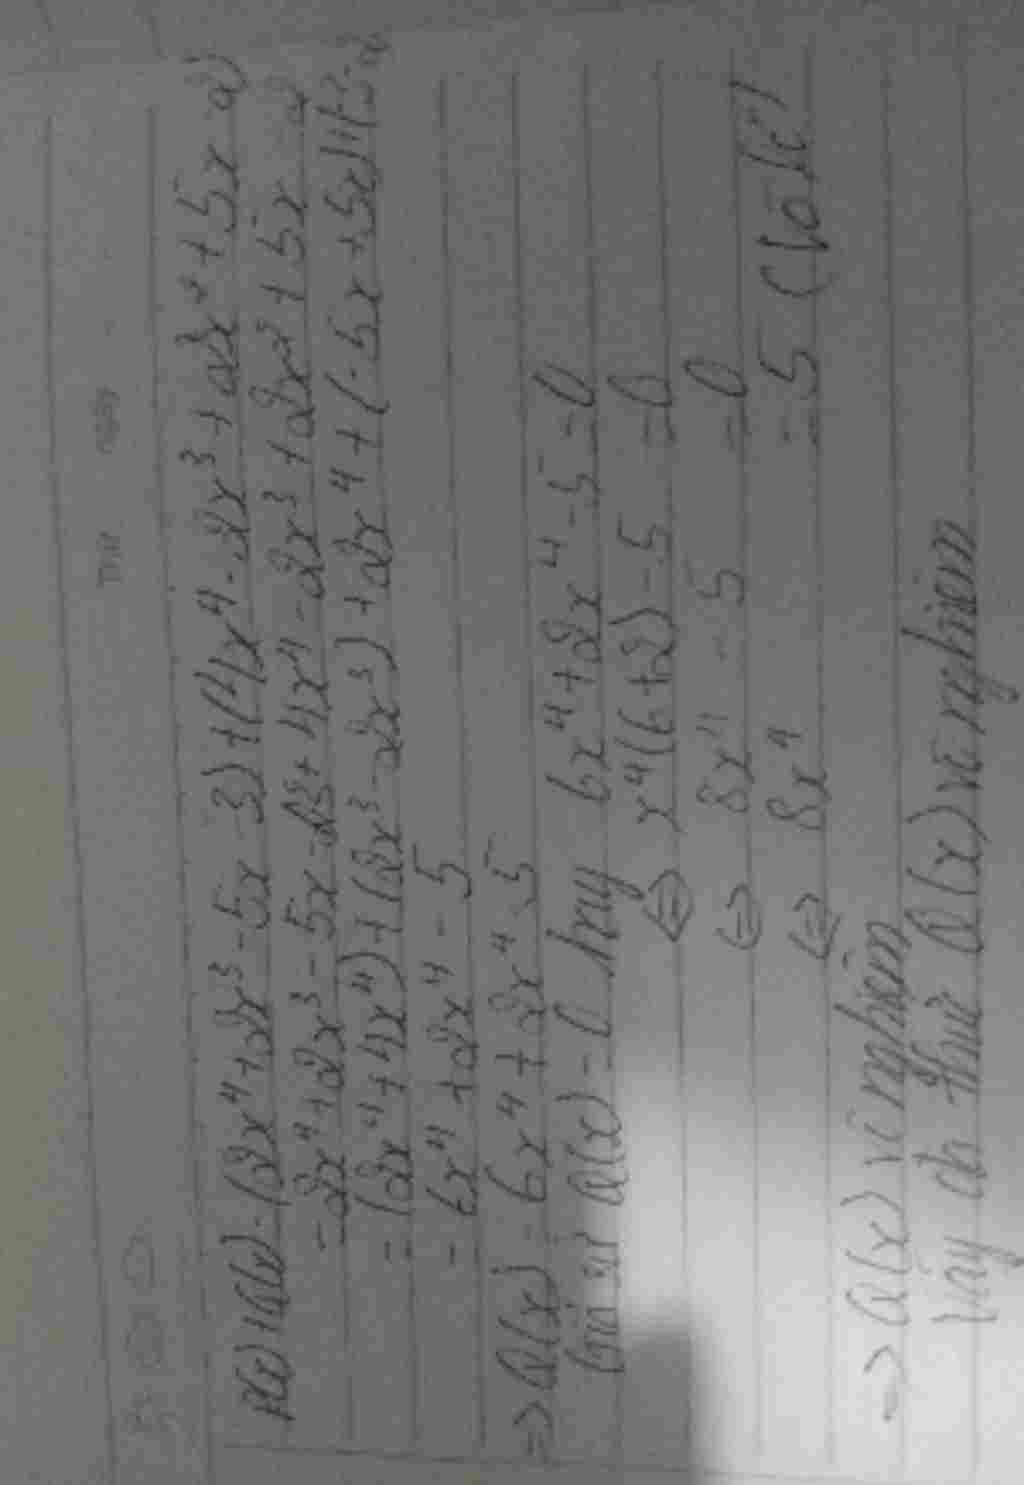 P(x)+Q(x)=(2x⁴+2x³-5x-3)+(4x⁴-2x³+2x²+5x-2)
=2x⁴+2x³-5x-3+4x⁴-2x³+2x²+5x-2
=(2x⁴+4x⁴)+(2x³-2x³)+2x⁴+(-5x+5x)+(-3-2)
=6x⁴+2x⁴-5
=> Q(x)=6x⁴+2x⁴-5
Giả sử Q(x)=0 hay 6x⁴+2x⁴-5=0
<=> x⁴(6+2)-5=0
<=> 8x⁴-5=0
<=> 8x⁴=5 (Vô lí)
=> Q(x) vô nghiệm
Vậy đa thức Q(x) vô nghiệm